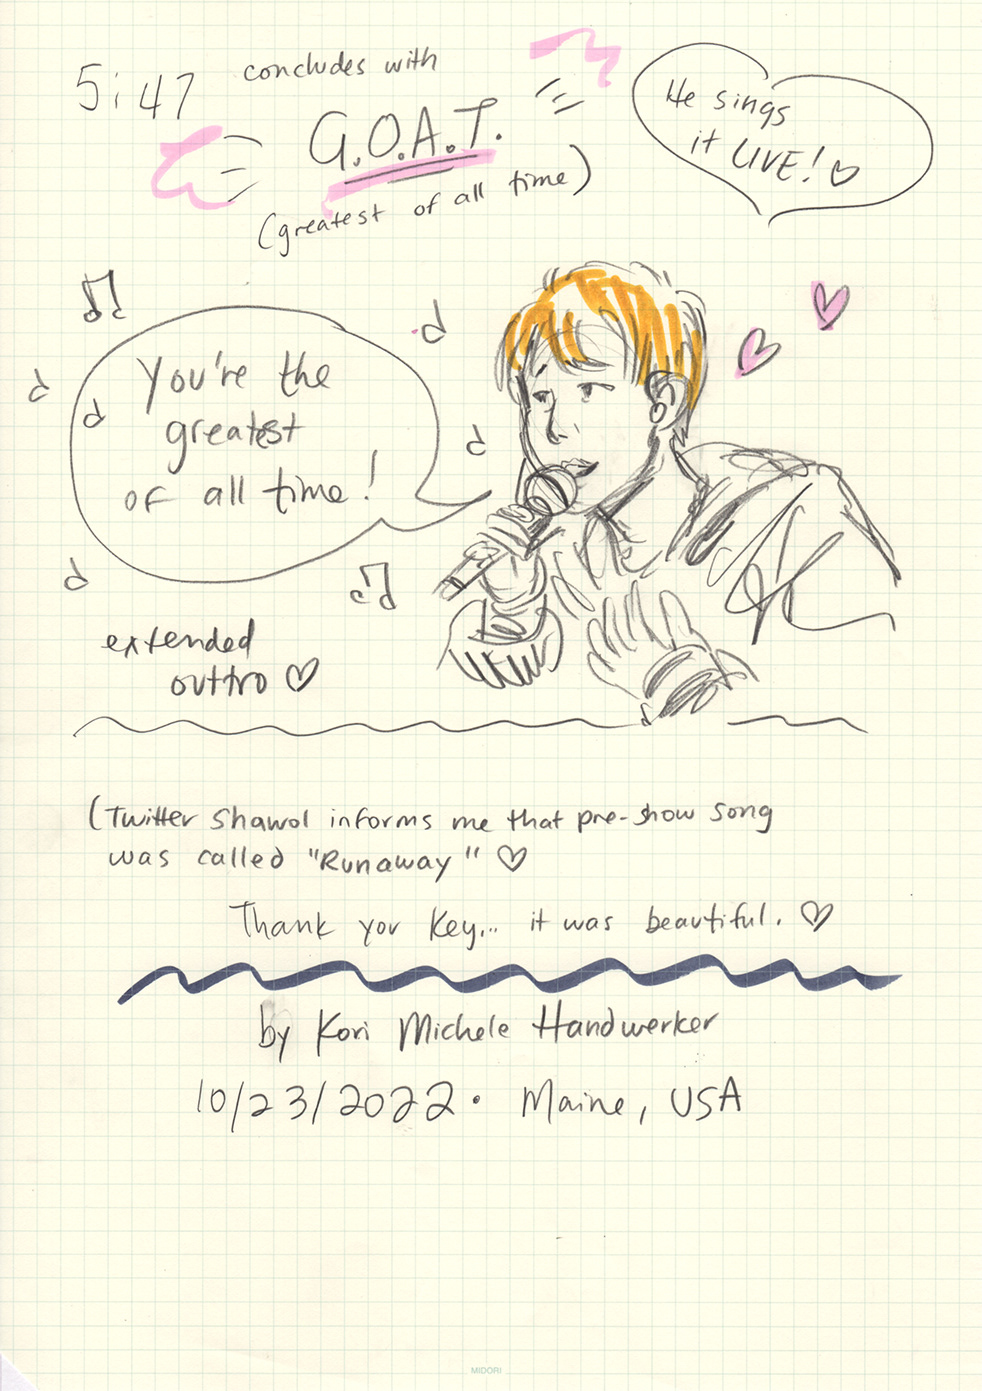 5:47
concludes with
G.O.A.T.
(greatest of all time)
He sings
it LIVE! ♡
You're the
greatest
of all time!
extended
outtro ♡
(Twitter Shawol informs me that pre-show song
was called "Runaway" ♡
Thank you Key... it was beautiful. ♡
by Kori Michele Handwerker
10/23/2022 • Maine, USA
MIDORI